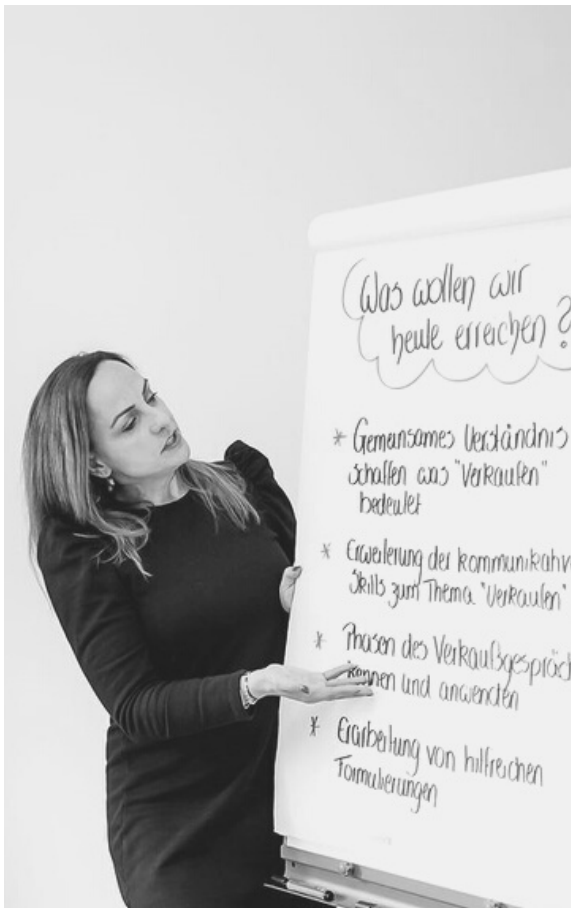 Was wollen wir
heute erreichen?
* Gemeinsames Verständnis
schaffen was "Verkaufen"
bedeutet
* Erweiterung der kommunikativ
Skills zum Thema "Verkaufen"
* Phasen des Verkaufsgespräch
kennen und anwenden
* Erarbeitung von hilfreichen
Formulierungen